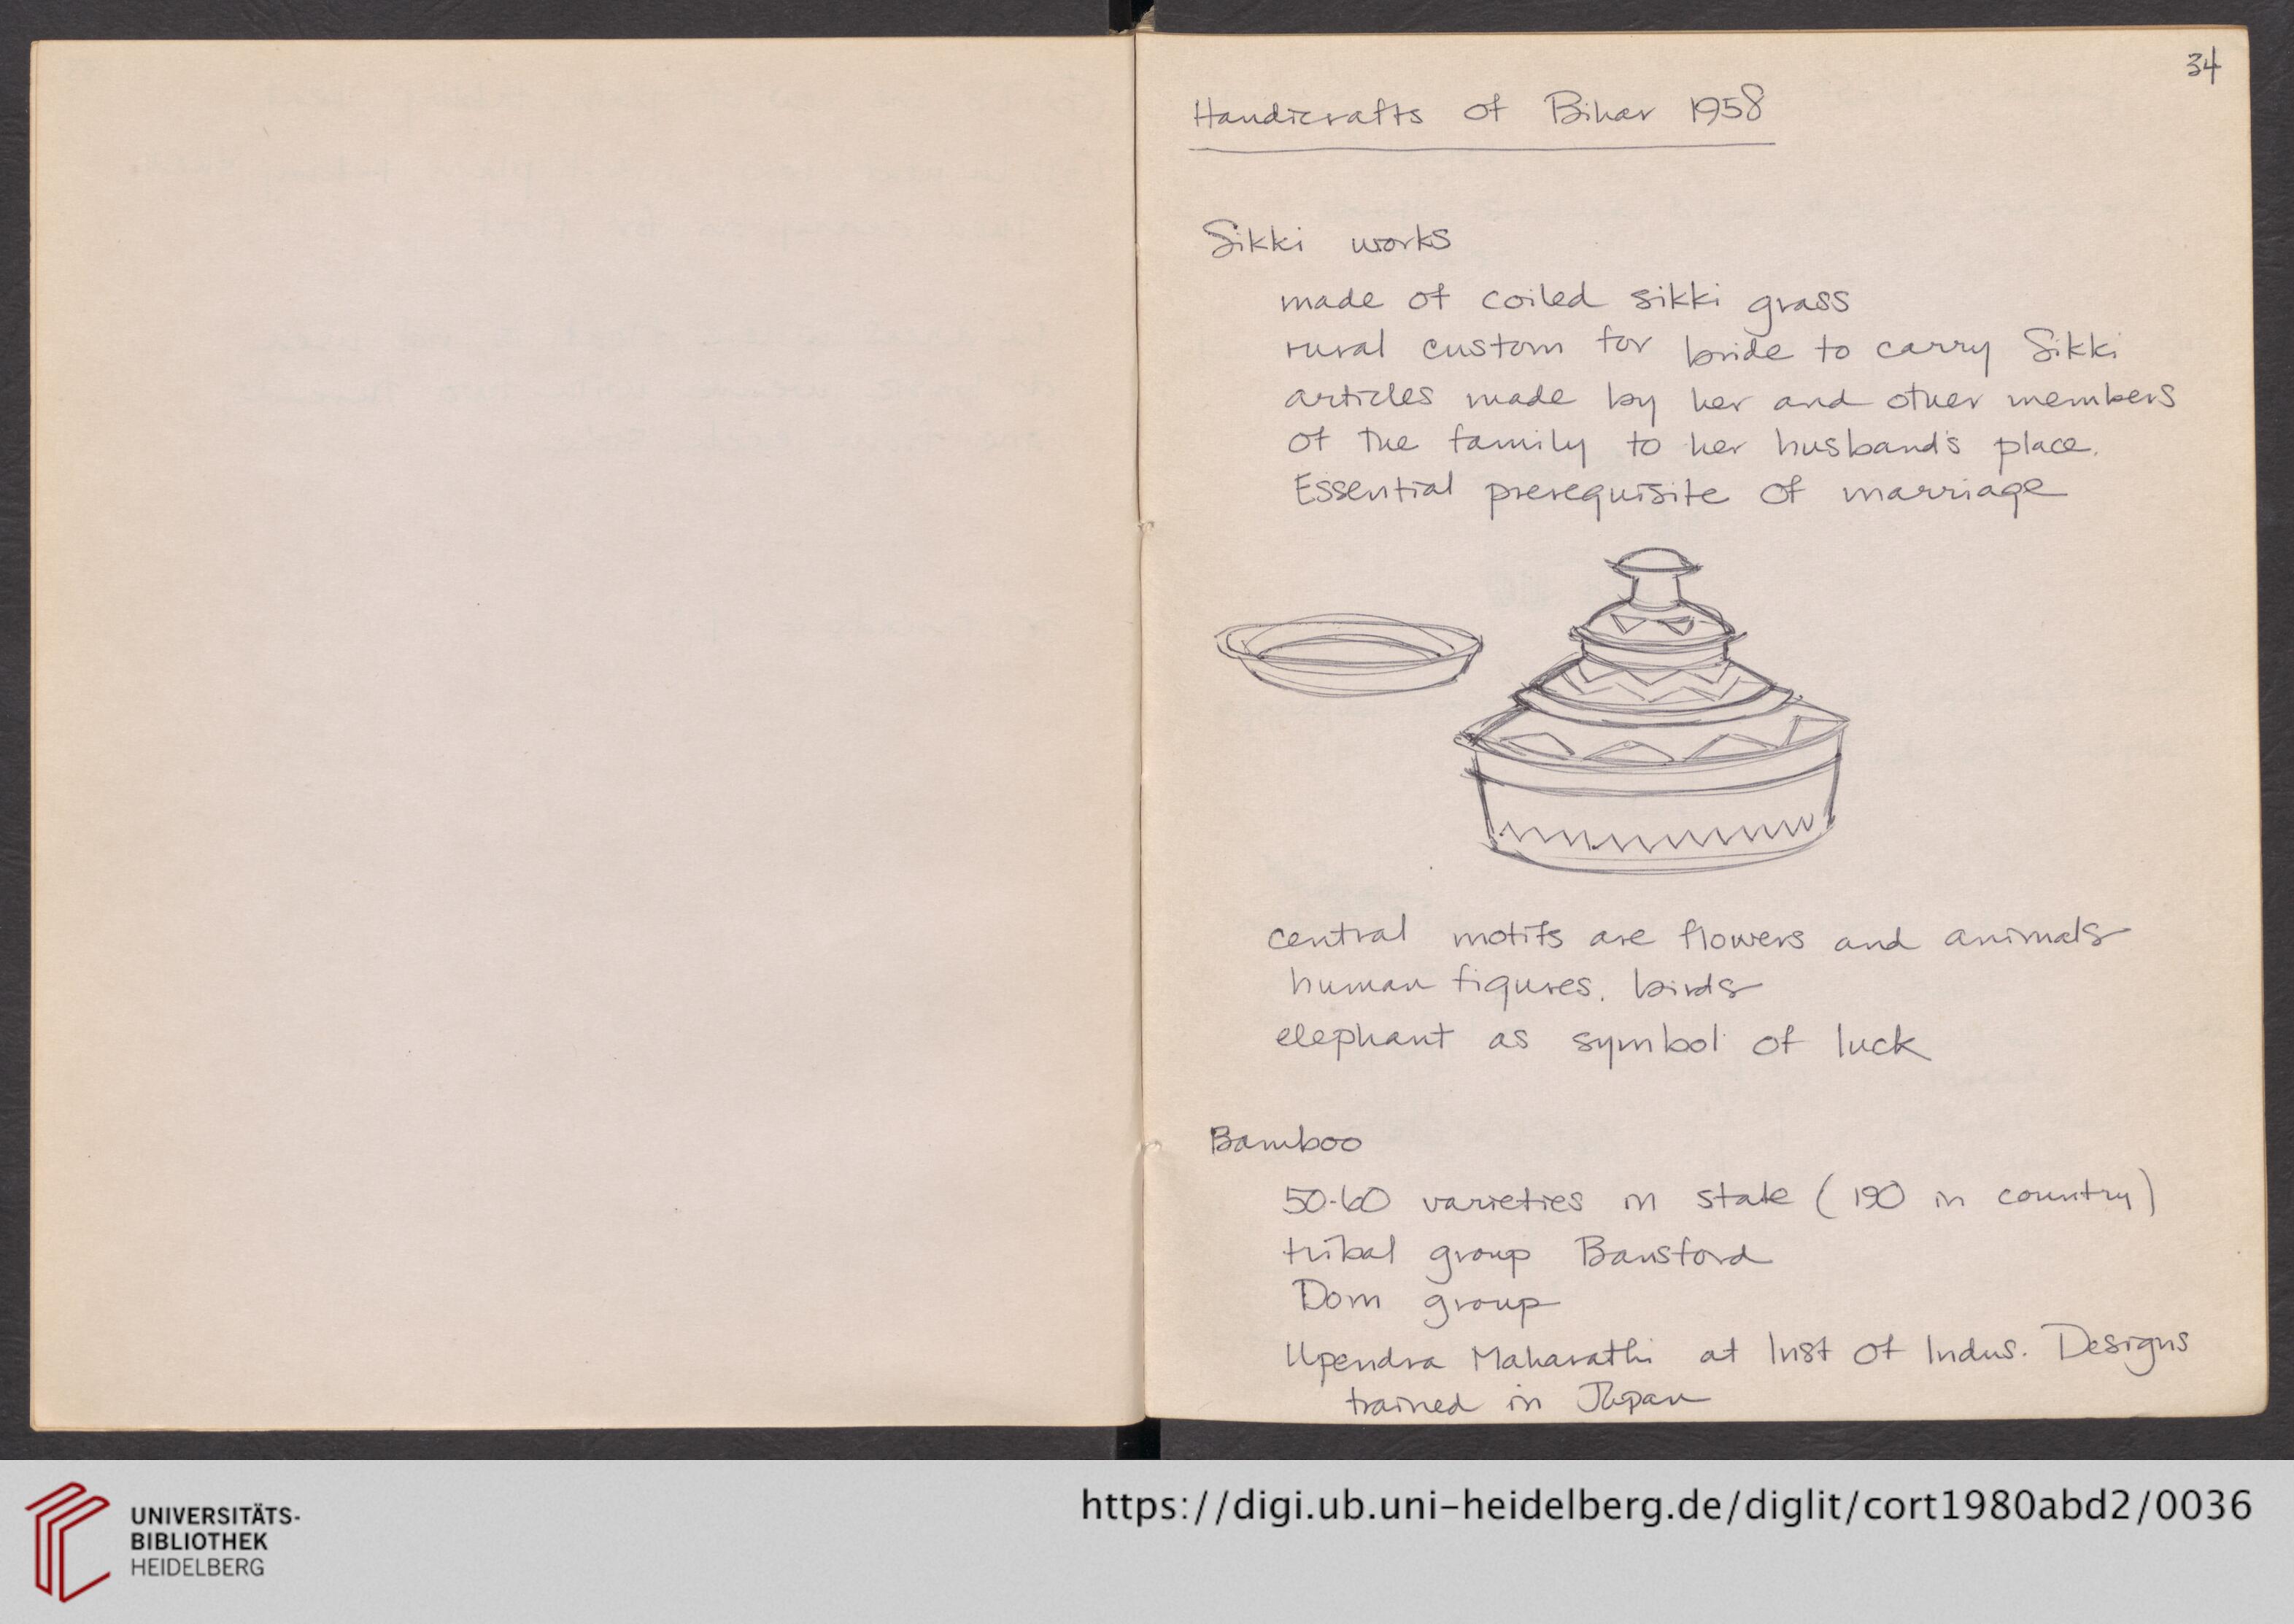 34
Handicrafts of Bihar 1958
Sikki works
made of coiled sikki grass
rural custom for bride to carry Sikki
articles made by her and other members
of the family to her husband's place.
Essential prerequisite of marriage
central motifs are flowers and animals
human figures. birds
elephant as symbol of luck
Bamboo
50-60 varieties in state (190 in country)
tribal group Bansford
Dom group
Upendra Maharathi at Inst of Indus. Designs
trained in Japan
UNIVERSITÄTS-
BIBLIOTHEK
HEIDELBERG
https://digi.ub.uni-heidelberg.de/diglit/cort1980abd2/0036